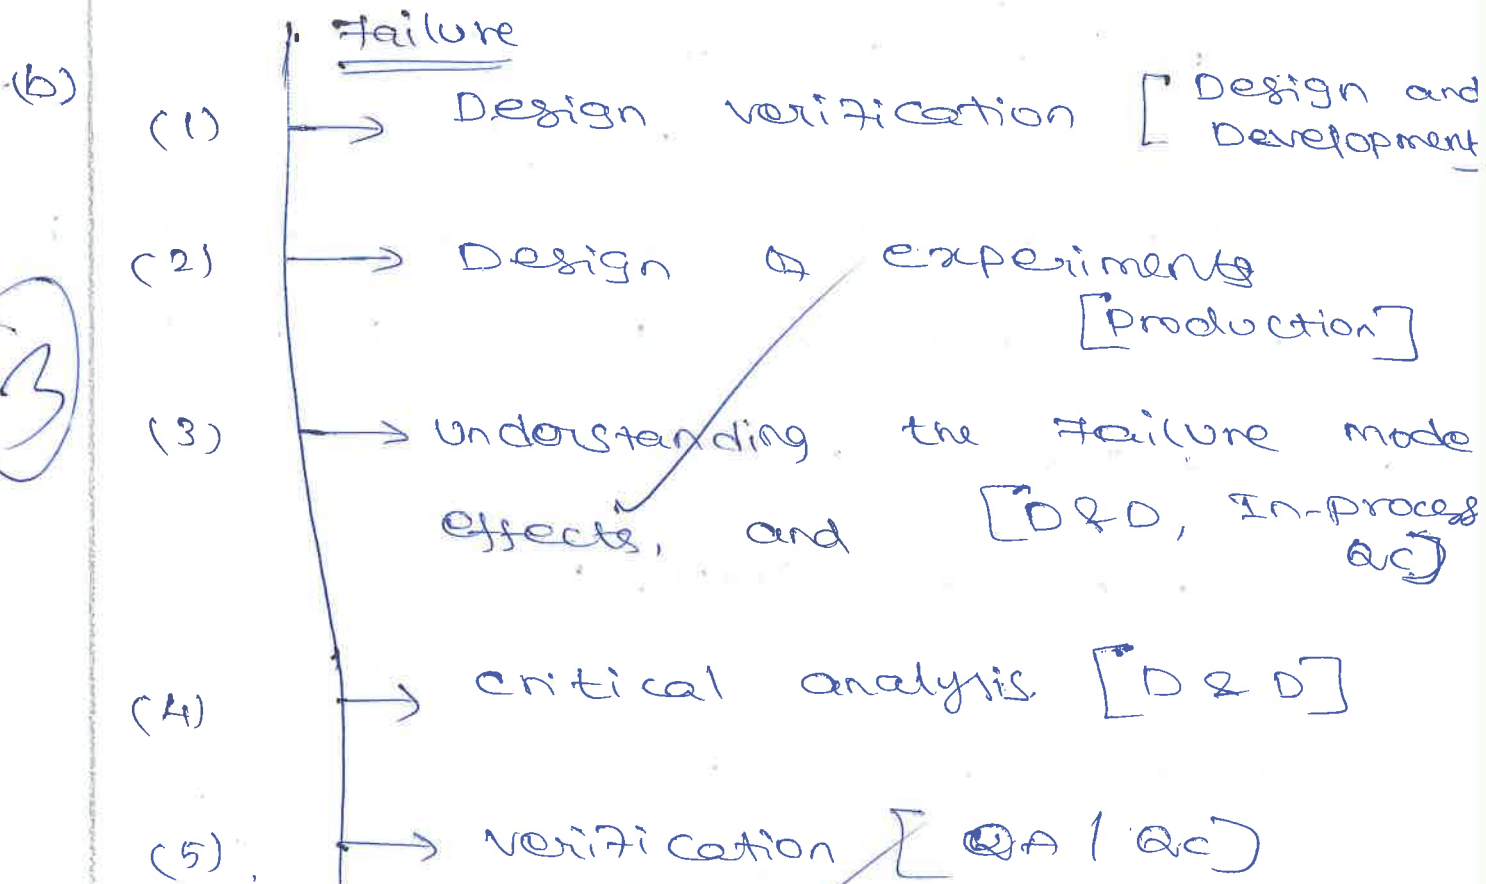 Failure
(b)
(1) Design verification [Design and
Development
(2) Design of experiments
[Production]
(3) Understanding the Failure mode
effects, and [D&D, In-process
QC]
(4) critical analysis [D & D]
(5) verification [QA / QC]
3